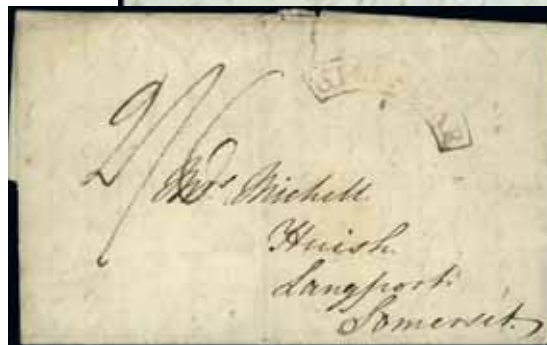 2/6
Mrs. Michell
Huish
Langport
Somerset